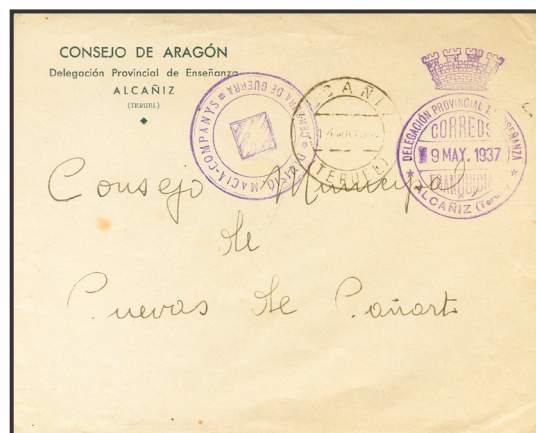 CONSEJO DE ARAGÓN
Delegación Provincial de Enseñanza
ALCAÑIZ
(TERUEL)
DIVISIÓ MACIÀ-COMPANYS
DE GUERRA
ALCAÑIZ
(TERUEL)
DELEGACIÓN PROVINCIAL ENSEÑANZA
CORREOS
19 MAY. 1937
FRANQUICIA
ALCAÑIZ (Teruel)
Consejo Municipal
de
Cuevas de Cañart